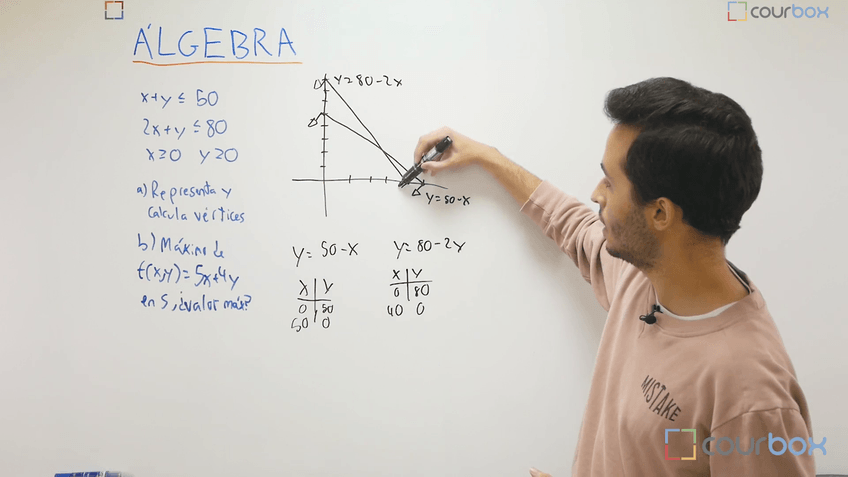 courbox
ÁLGEBRA
x+y ≤ 50
2x+y ≤ 80
x≥0 y≥0
a) Representa y
calcula vértices
b) Máximo de
f(x,y)=5x+4y
en S, ¿valor máx?
y=80-2x
y=50-x
y= 50-x
x y
0 50
50 0
y= 80-2y
x y
0 80
40 0
MISTAKE
courbox